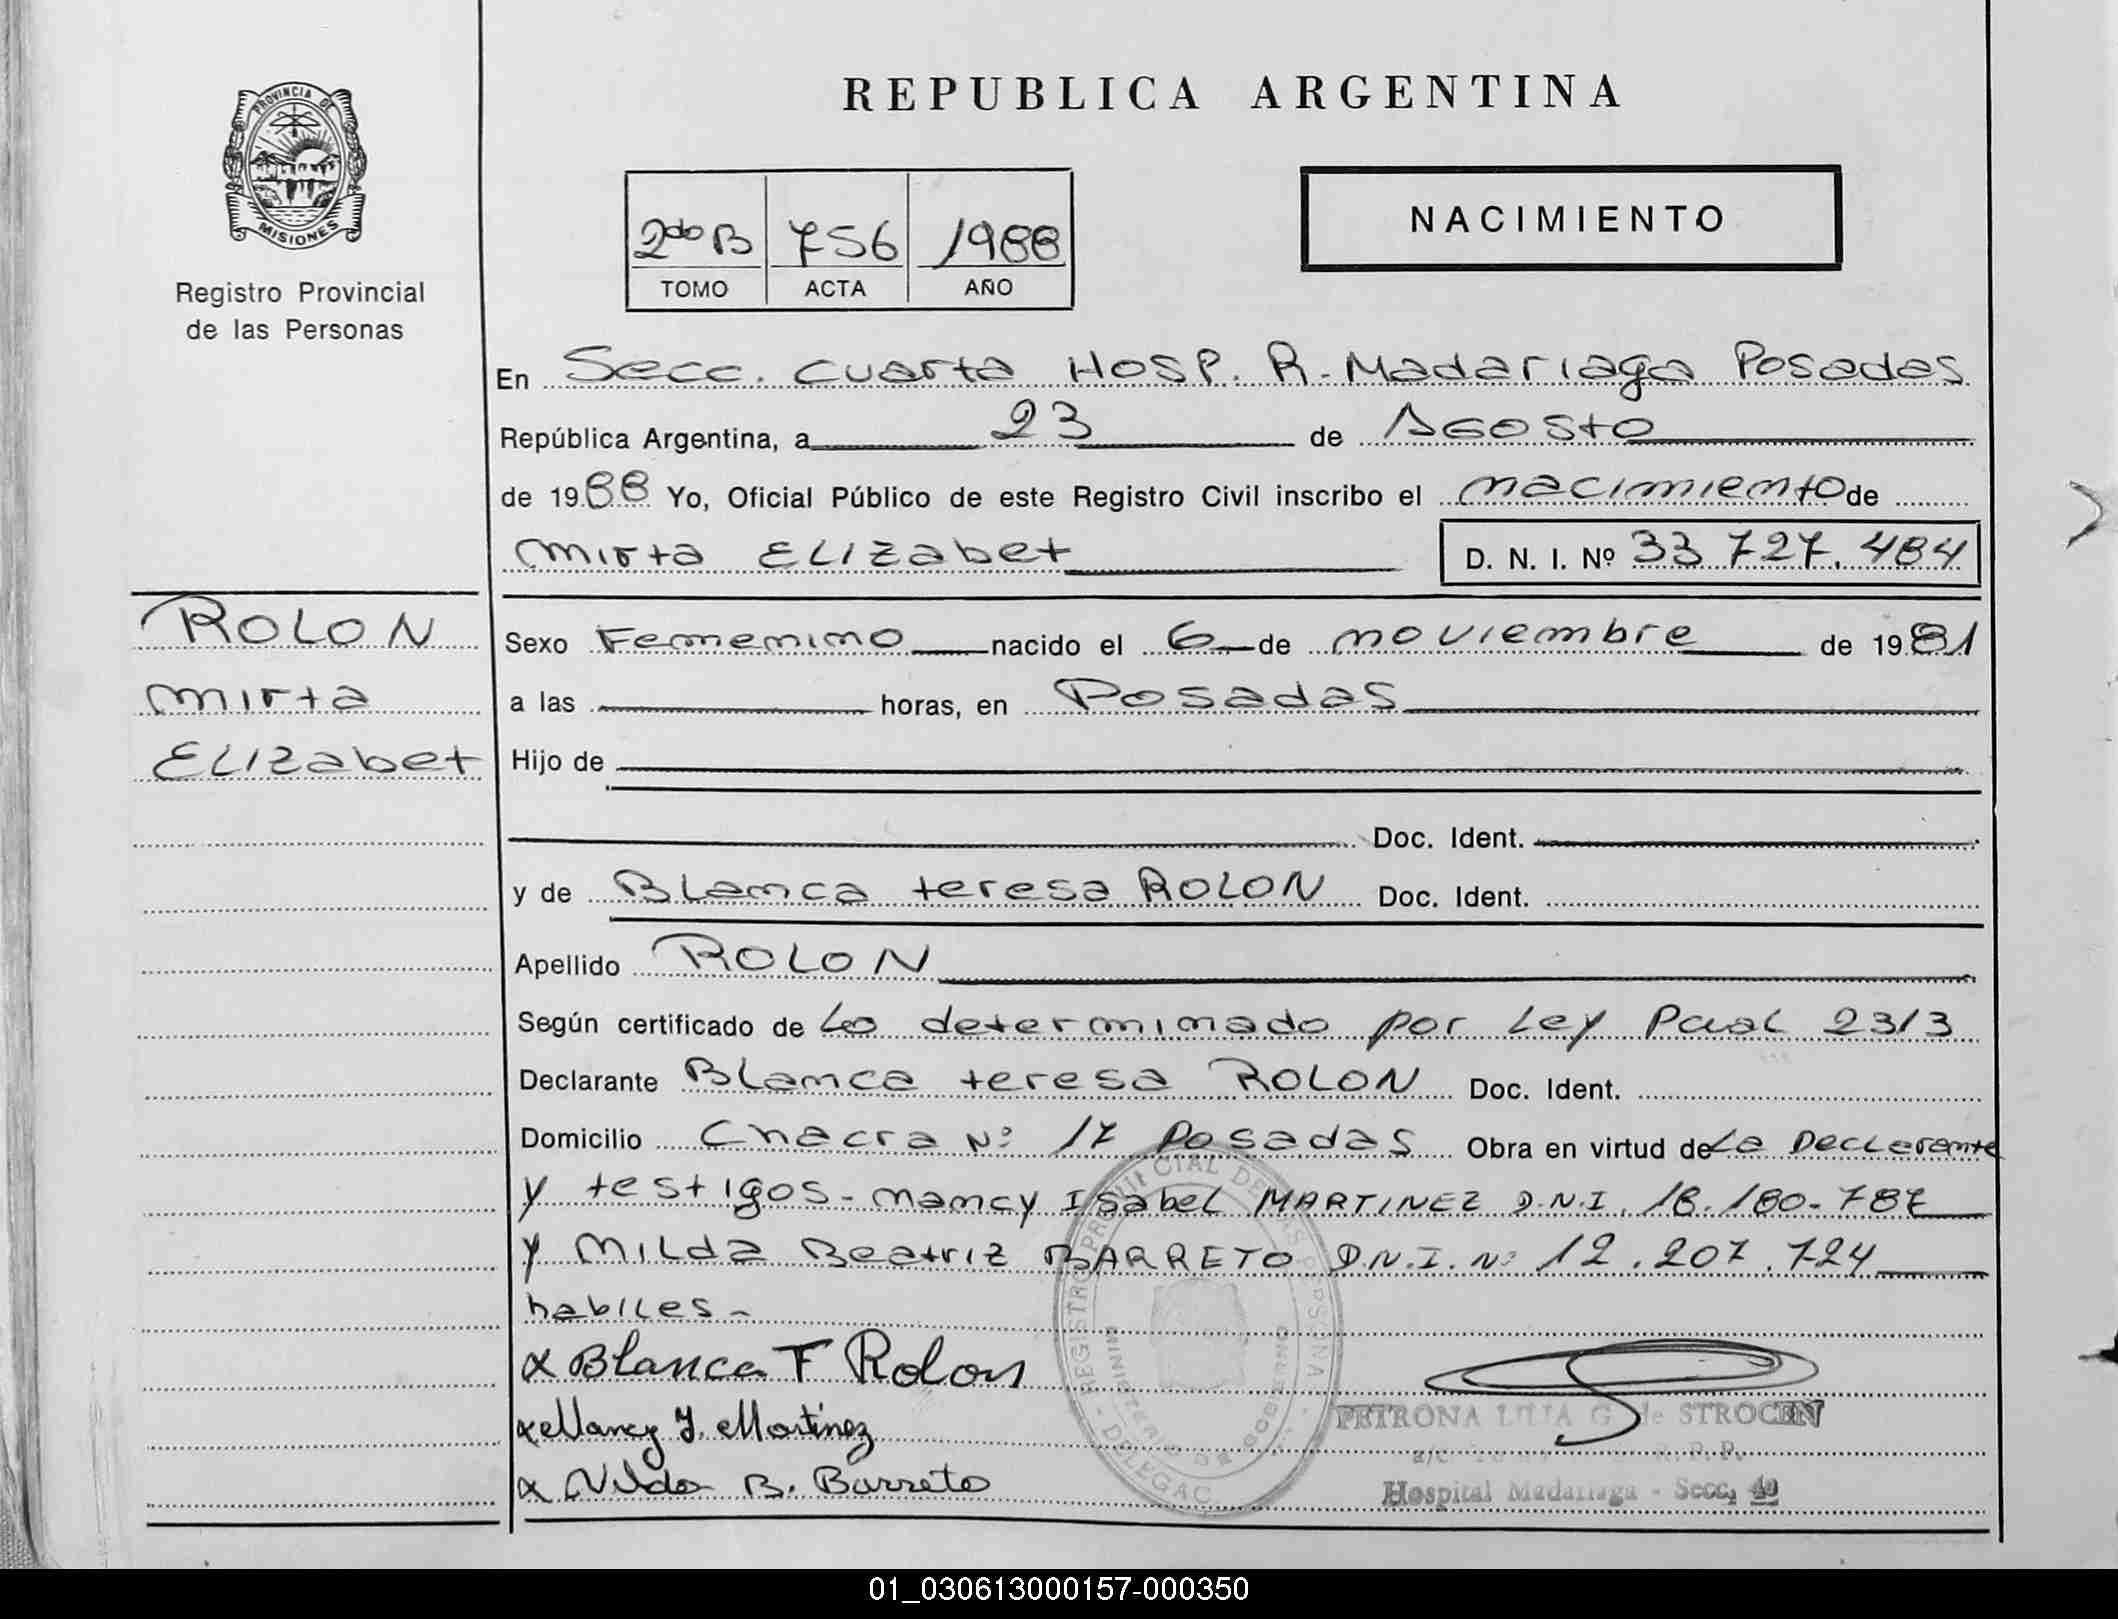 PROVINCIA DE
MISIONES
Registro Provincial
de las Personas
REPUBLICA ARGENTINA
2do B 756 1988
TOMO ACTA AÑO
NACIMIENTO
En Secc. Cuarta Hosp. R. Madariaga Posadas
República Argentina, a 23 de Agosto
de 1988 Yo, Oficial Público de este Registro Civil inscribo el nacimiento de
Mirta Elizabet D. N. I. Nº 33.727.484
ROLON
Mirta
Elizabet
Sexo Femenino nacido el 6 de noviembre de 1981
a las horas, en Posadas
Hijo de
Doc. Ident.
y de Blanca teresa ROLON Doc. Ident.
Apellido ROLON
Según certificado de Lo determinado por Ley Pcial 2313
Declarante Blanca teresa ROLON Doc. Ident.
Domicilio Chacra Nº 17 Posadas Obra en virtud de La Declarante
y testigos - Nancy Isabel MARTINEZ D.N.I. 18.180-787
y Nilda Beatriz BARRETO D.N.I. Nº 12.207.724
habiles -
x Blanca T Rolon
x Nancy I. Martínez
x Nilda B. Barreto
REGISTRO PROVINCIAL DE LAS PERSONAS - DELEGAC
MINISTERIO DE GOBIERNO
PETRONA LILIA G. de STROCEN
R. P. P.
Hospital Madariaga - Secc. 4a
01_030613000157-000350